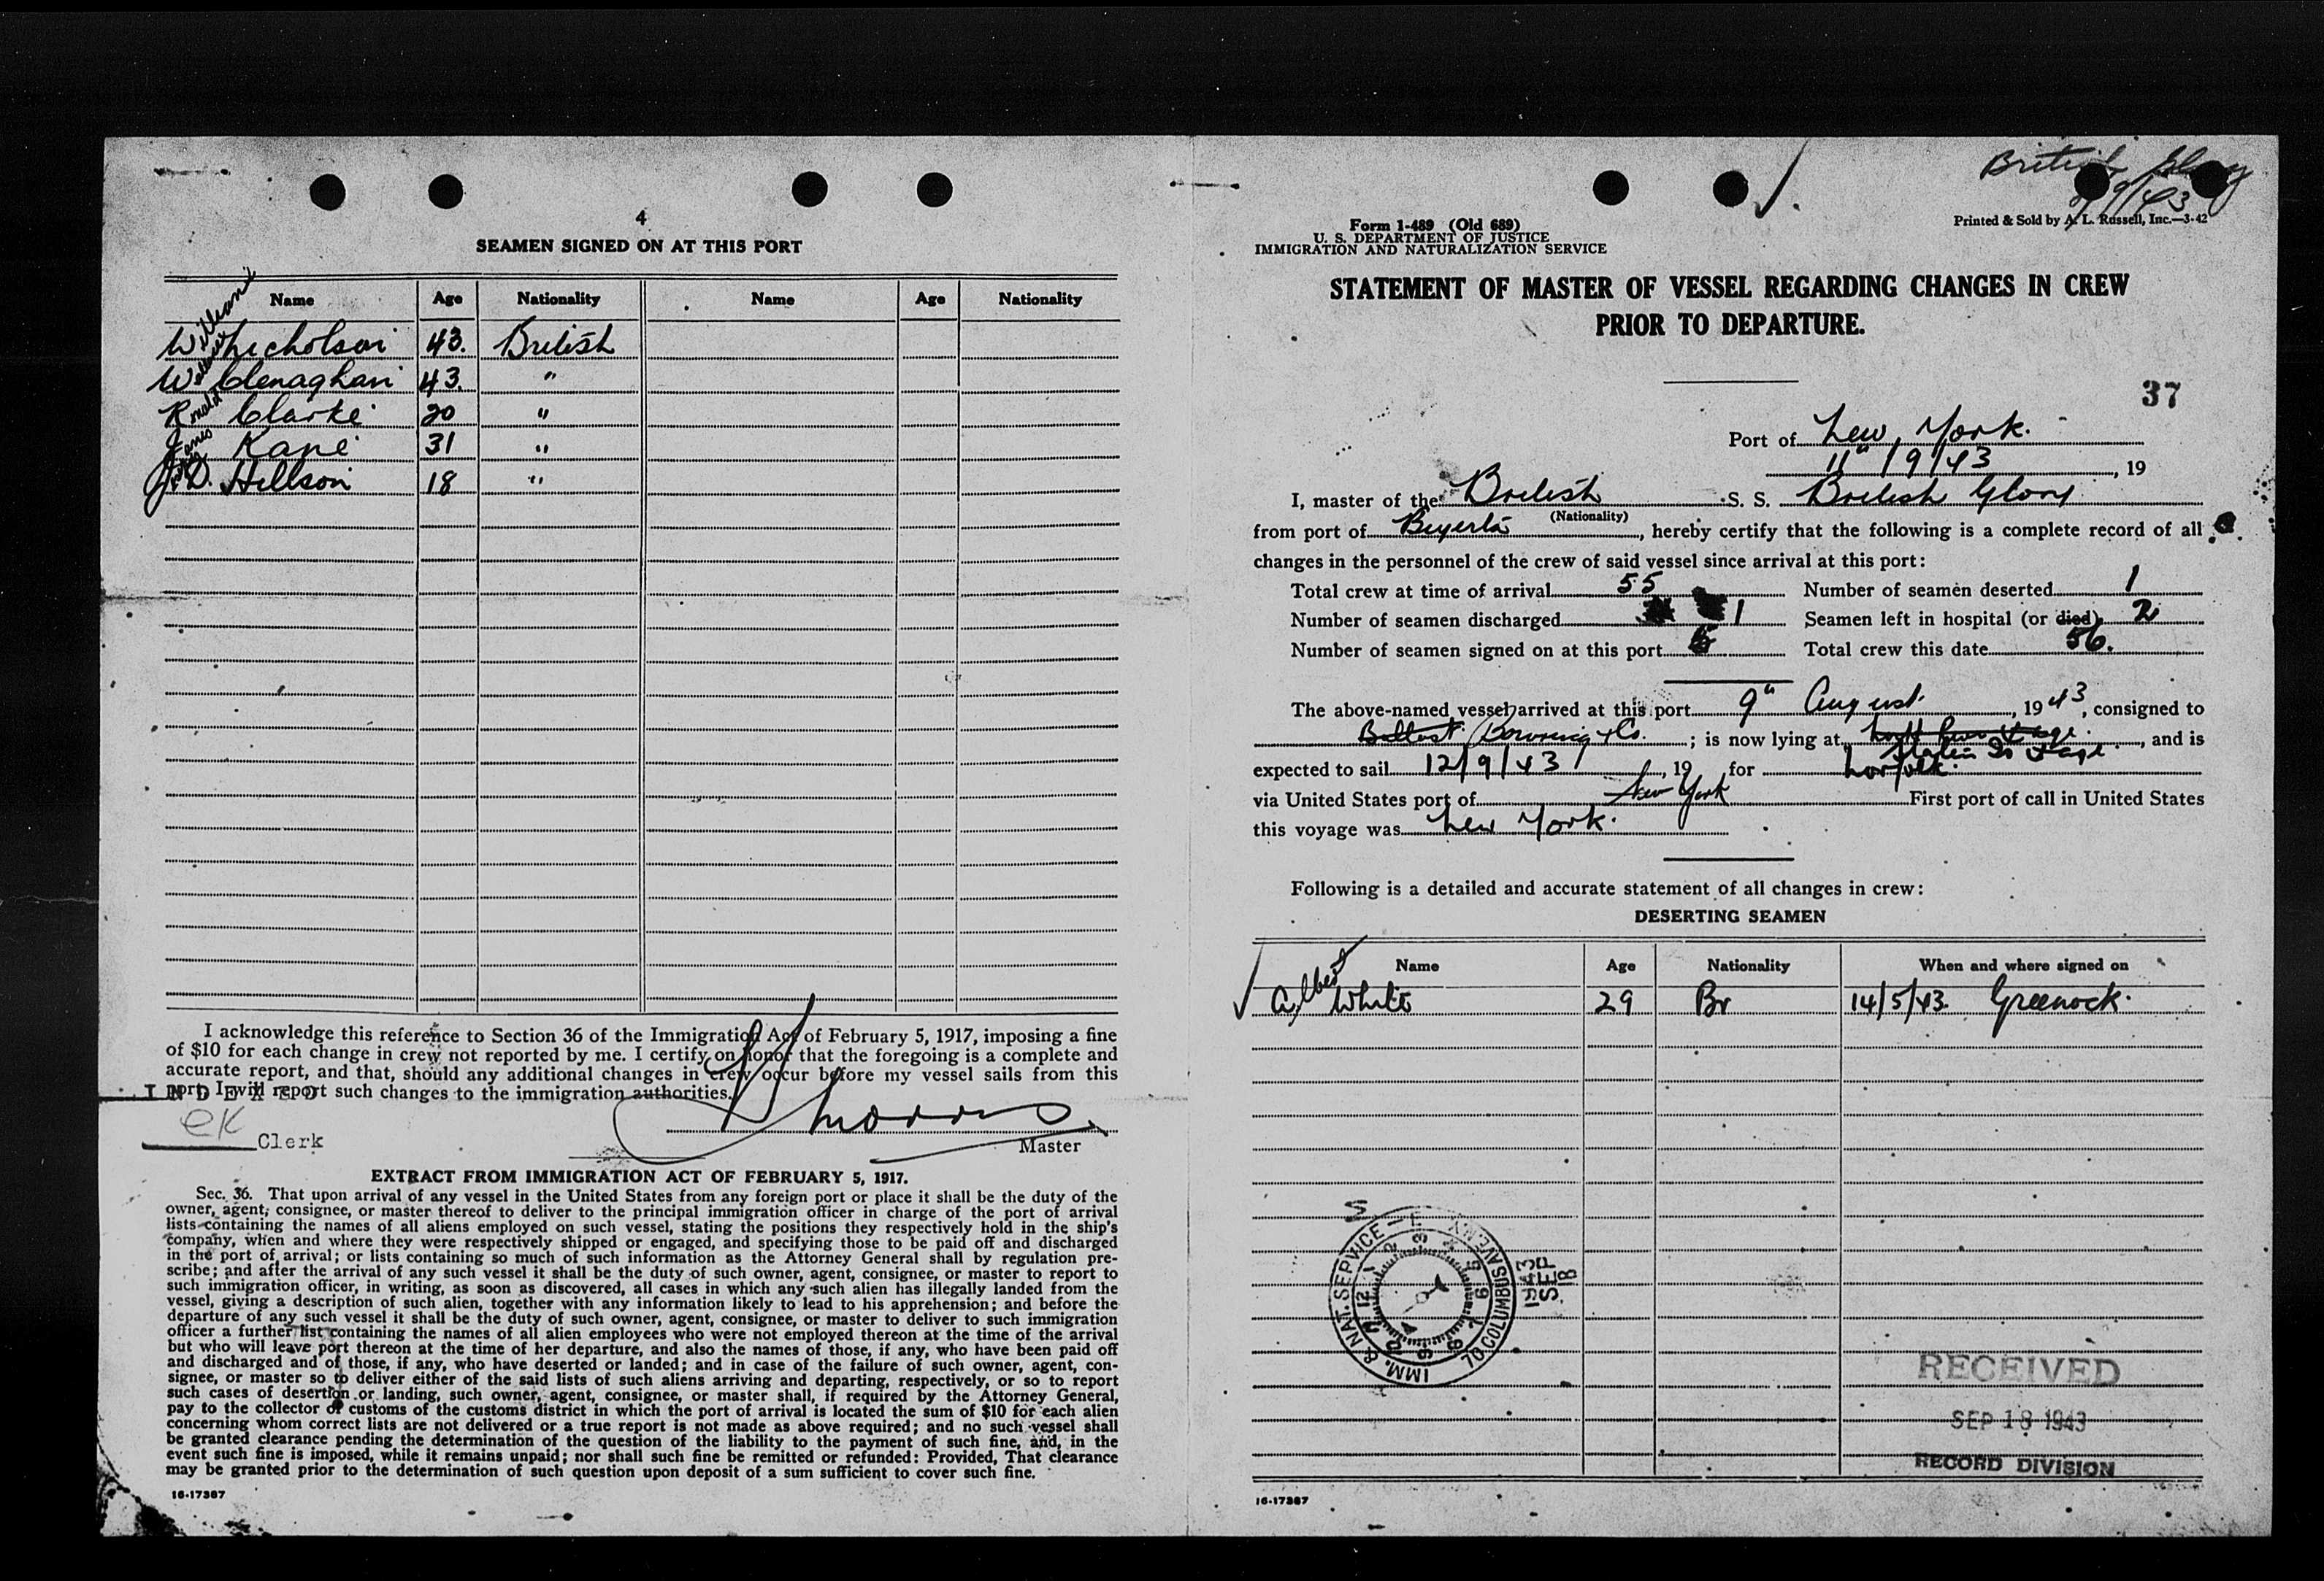 4
SEAMEN SIGNED ON AT THIS PORT
Name Age Nationality Name Age Nationality
William
W Nicholson 43. British
W Clenaghan 43. "
Ronald
R Clarke 20 "
James
J Kane 31 "
J. D. Hillson 18 "
I acknowledge this reference to Section 36 of the Immigration Act of February 5, 1917, imposing a fine
of $10 for each change in crew not reported by me. I certify on honor that the foregoing is a complete and
accurate report, and that, should any additional changes in crew occur before my vessel sails from this
port, I will report such changes to the immigration authorities.
INDEXED
EK Clerk
Morris
Master
EXTRACT FROM IMMIGRATION ACT OF FEBRUARY 5, 1917.
Sec. 36. That upon arrival of any vessel in the United States from any foreign port or place it shall be the duty of the
owner, agent, consignee, or master thereof to deliver to the principal immigration officer in charge of the port of arrival
lists containing the names of all aliens employed on such vessel, stating the positions they respectively hold in the ship's
company, when and where they were respectively shipped or engaged, and specifying those to be paid off and discharged
in the port of arrival; or lists containing so much of such information as the Attorney General shall by regulation pre-
scribe; and after the arrival of any such vessel it shall be the duty of such owner, agent, consignee, or master to report to
such immigration officer, in writing, as soon as discovered, all cases in which any such alien has illegally landed from the
vessel, giving a description of such alien, together with any information likely to lead to his apprehension; and before the
departure of any such vessel it shall be the duty of such owner, agent, consignee, or master to deliver to such immigration
officer a further list containing the names of all alien employees who were not employed thereon at the time of the arrival
but who will leave port thereon at the time of her departure, and also the names of those, if any, who have been paid off
and discharged and of those, if any, who have deserted or landed; and in case of the failure of such owner, agent, con-
signee, or master so to deliver either of the said lists of such aliens arriving and departing, respectively, or so to report
such cases of desertion or landing, such owner, agent, consignee, or master shall, if required by the Attorney General,
pay to the collector of customs of the customs district in which the port of arrival is located the sum of $10 for each alien
concerning whom correct lists are not delivered or a true report is not made as above required; and no such vessel shall
be granted clearance pending the determination of the question of the liability to the payment of such fine, and, in the
event such fine is imposed, while it remains unpaid; nor shall such fine be remitted or refunded: Provided, That clearance
may be granted prior to the determination of such question upon deposit of a sum sufficient to cover such fine.
16-17367
British Glory
9/43
Printed & Sold by A. L. Russell, Inc.—3-42
Form 1-489 (Old 689)
U. S. DEPARTMENT OF JUSTICE
IMMIGRATION AND NATURALIZATION SERVICE
STATEMENT OF MASTER OF VESSEL REGARDING CHANGES IN CREW
PRIOR TO DEPARTURE.
37
Port of New York.
11" /9/43, 19
I, master of the British S. S. British Glory
(Nationality)
from port of , hereby certify that the following is a complete record of all
changes in the personnel of the crew of said vessel since arrival at this port:
Total crew at time of arrival 55 Number of seamen deserted 1
Number of seamen discharged 1 Seamen left in hospital (or died) 2
Number of seamen signed on at this port 5 Total crew this date 56.
The above-named vessel arrived at this port 9" August, 1943, consigned to
Bowring & Co. ; is now lying at , and is
expected to sail 12/9/43, 19 for Norfolk
via United States port of New York First port of call in United States
this voyage was New York.
Following is a detailed and accurate statement of all changes in crew:
DESERTING SEAMEN
Name Age Nationality When and where signed on
Albert
A, White 29 Br 14/5/43. Greenock.
IMM. & NAT. SERVICE 70 COLUMBUS AVE. N.Y.
1943 SEP 18
RECEIVED
SEP 18 1943
RECORD DIVISION
16-17367